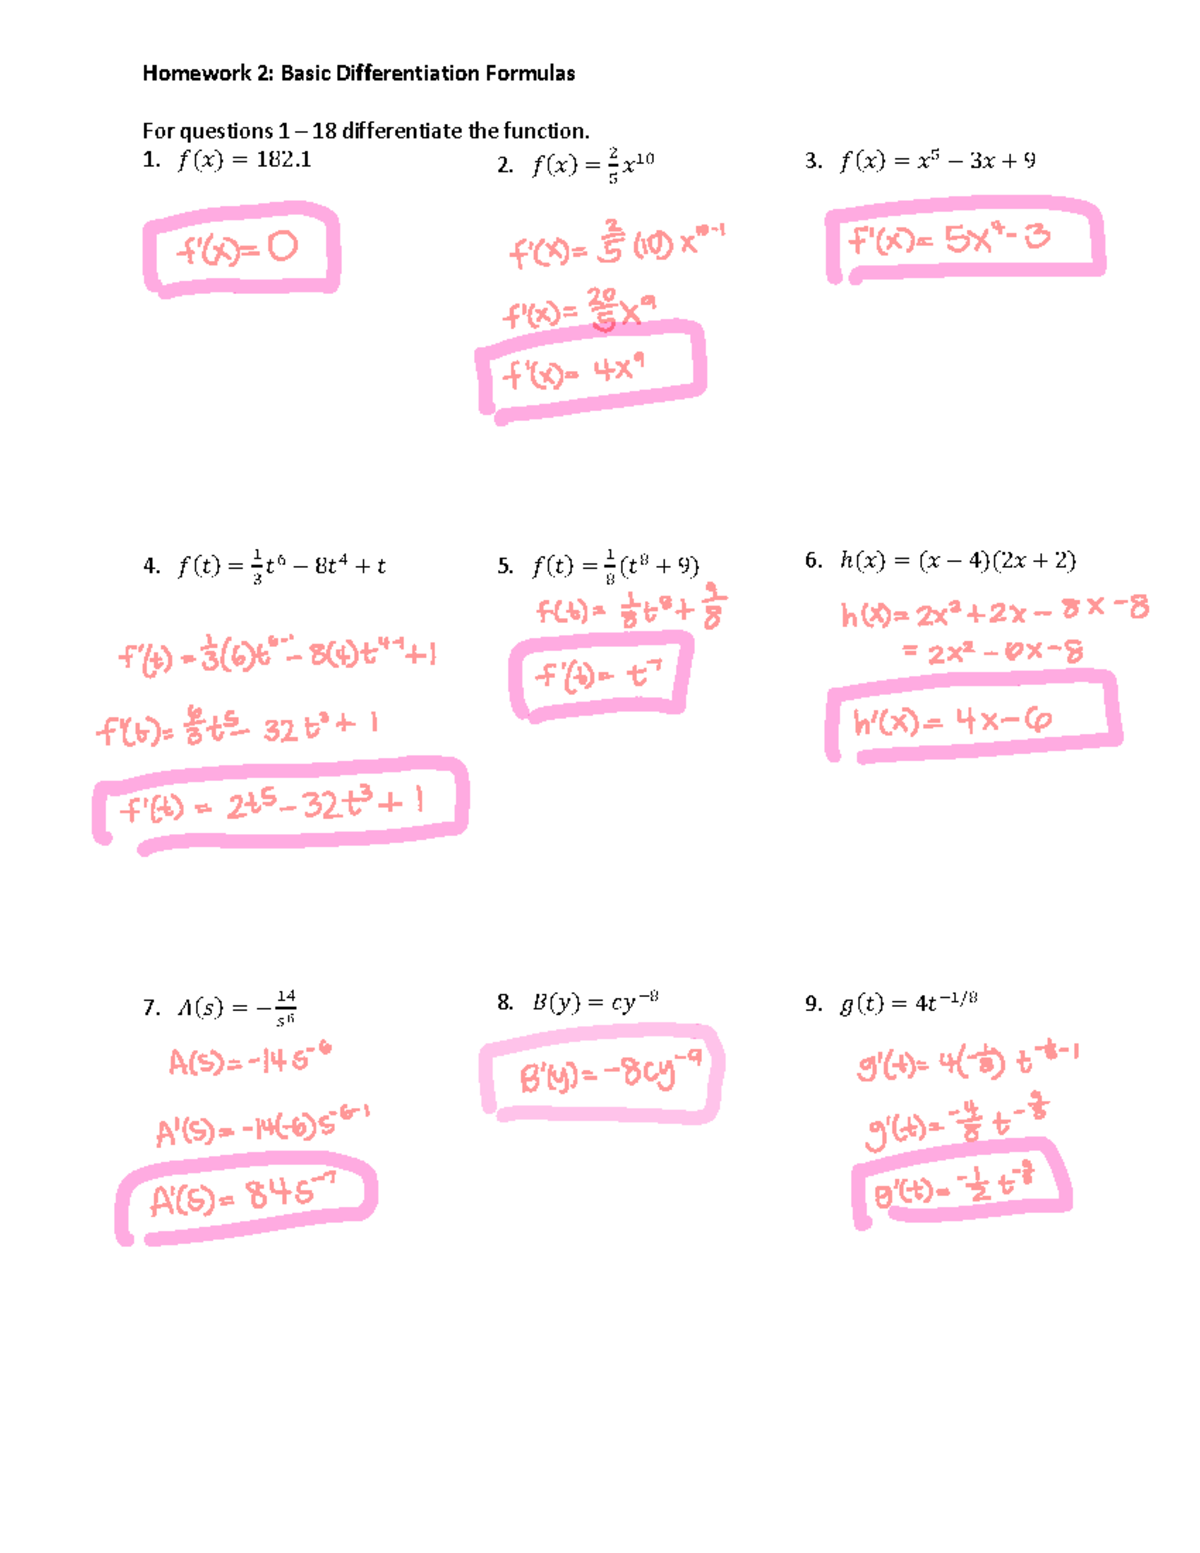 Homework 2: Basic Differentiation Formulas
For questions 1 – 18 differentiate the function.
1. f(x) = 182.1
f'(x)= 0
2. f(x) = 2/5 x^10
f'(x)= 2/5 (10) x^10-1
f'(x)= 20/5 x^9
f'(x)= 4x^9
3. f(x) = x^5 – 3x + 9
f'(x)= 5x^4 - 3
4. f(t) = 1/3 t^6 – 8t^4 + t
f'(t) = 1/3(6)t^6-1 - 8(4)t^4-1 + 1
f'(t)= 6/3 t^5 - 32t^3 + 1
f'(t) = 2t^5 - 32t^3 + 1
5. f(t) = 1/8 (t^8 + 9)
f(t)= 1/8 t^8 + 9/8
f'(t)= t^7
6. h(x) = (x – 4)(2x + 2)
h(x)= 2x^2 + 2x - 8x - 8
= 2x^2 - 6x - 8
h'(x)= 4x - 6
7. A(s) = – 14/s^6
A(s)= -14s^-6
A'(s)= -14(-6)s^-6-1
A'(s)= 84s^-7
8. B(y) = cy^–8
B'(y)= -8cy^-9
9. g(t) = 4t^–1/8
g'(t)= 4(-1/8) t^-1/8-1
g'(t)= -4/8 t^-9/8
g'(t)= -1/2 t^-9/8